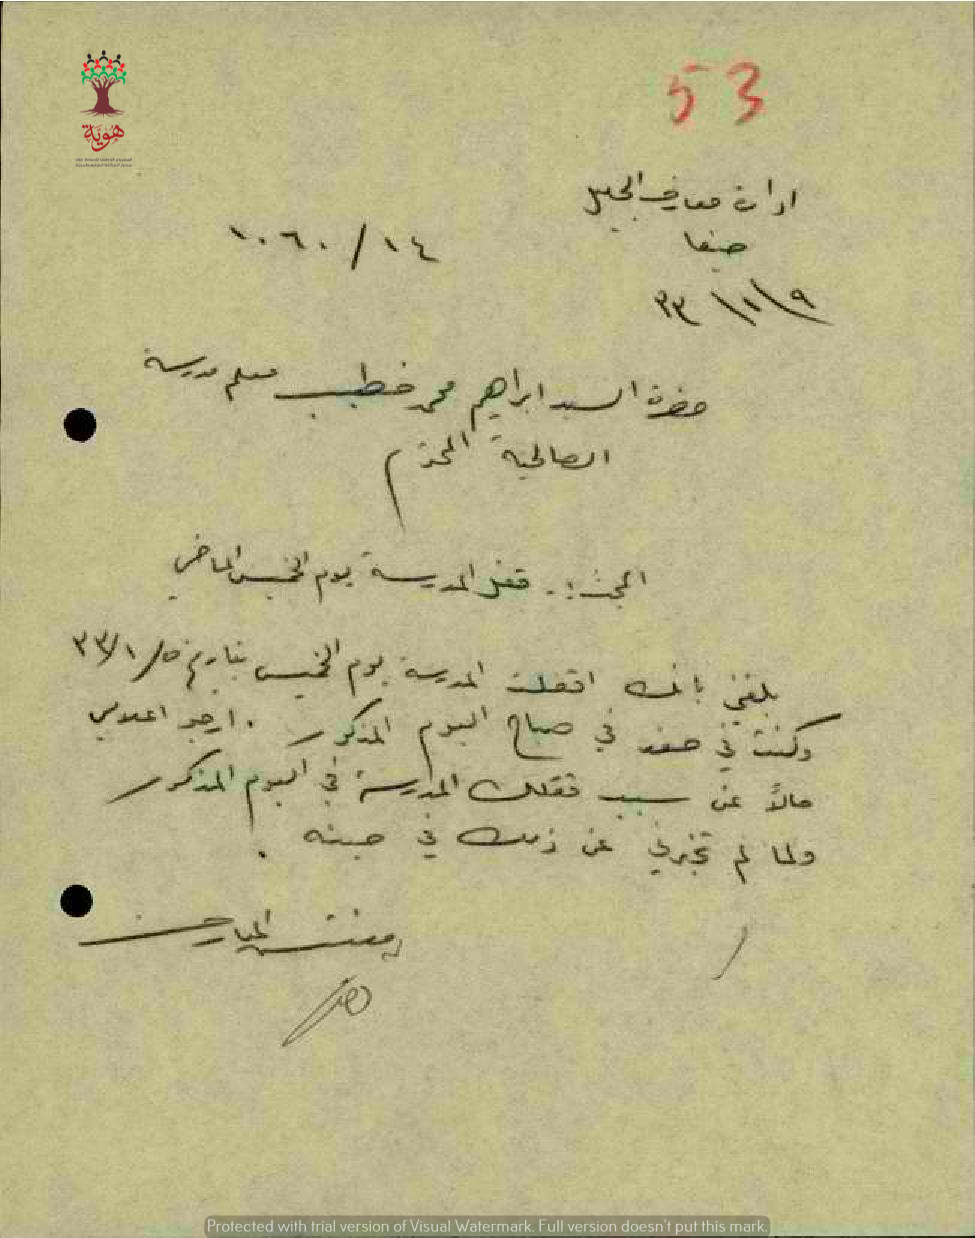 53
هوية
ادارة معارف الجليل
حيفا
١٤/١٠٦٠
حضرة السيد ابراهيم محمد خطيب معلم مدرسة
الصالحية المحترم
البحث :. قفل المدرسة يوم الخميس الماضي
بلغني بانك اقفلت المدرسة يوم الخميس بتاريخ ٥/١/٣٣
وكنت في صفد في صباح اليوم المذكور . ارجو اعلامي
حالاً عن سبب قفلك المدرسة في اليوم المذكور
ولما لم تخبرني عن ذلك في حينه .
مفتش المعارف
Protected with trial version of Visual Watermark. Full version doesn't put this mark.